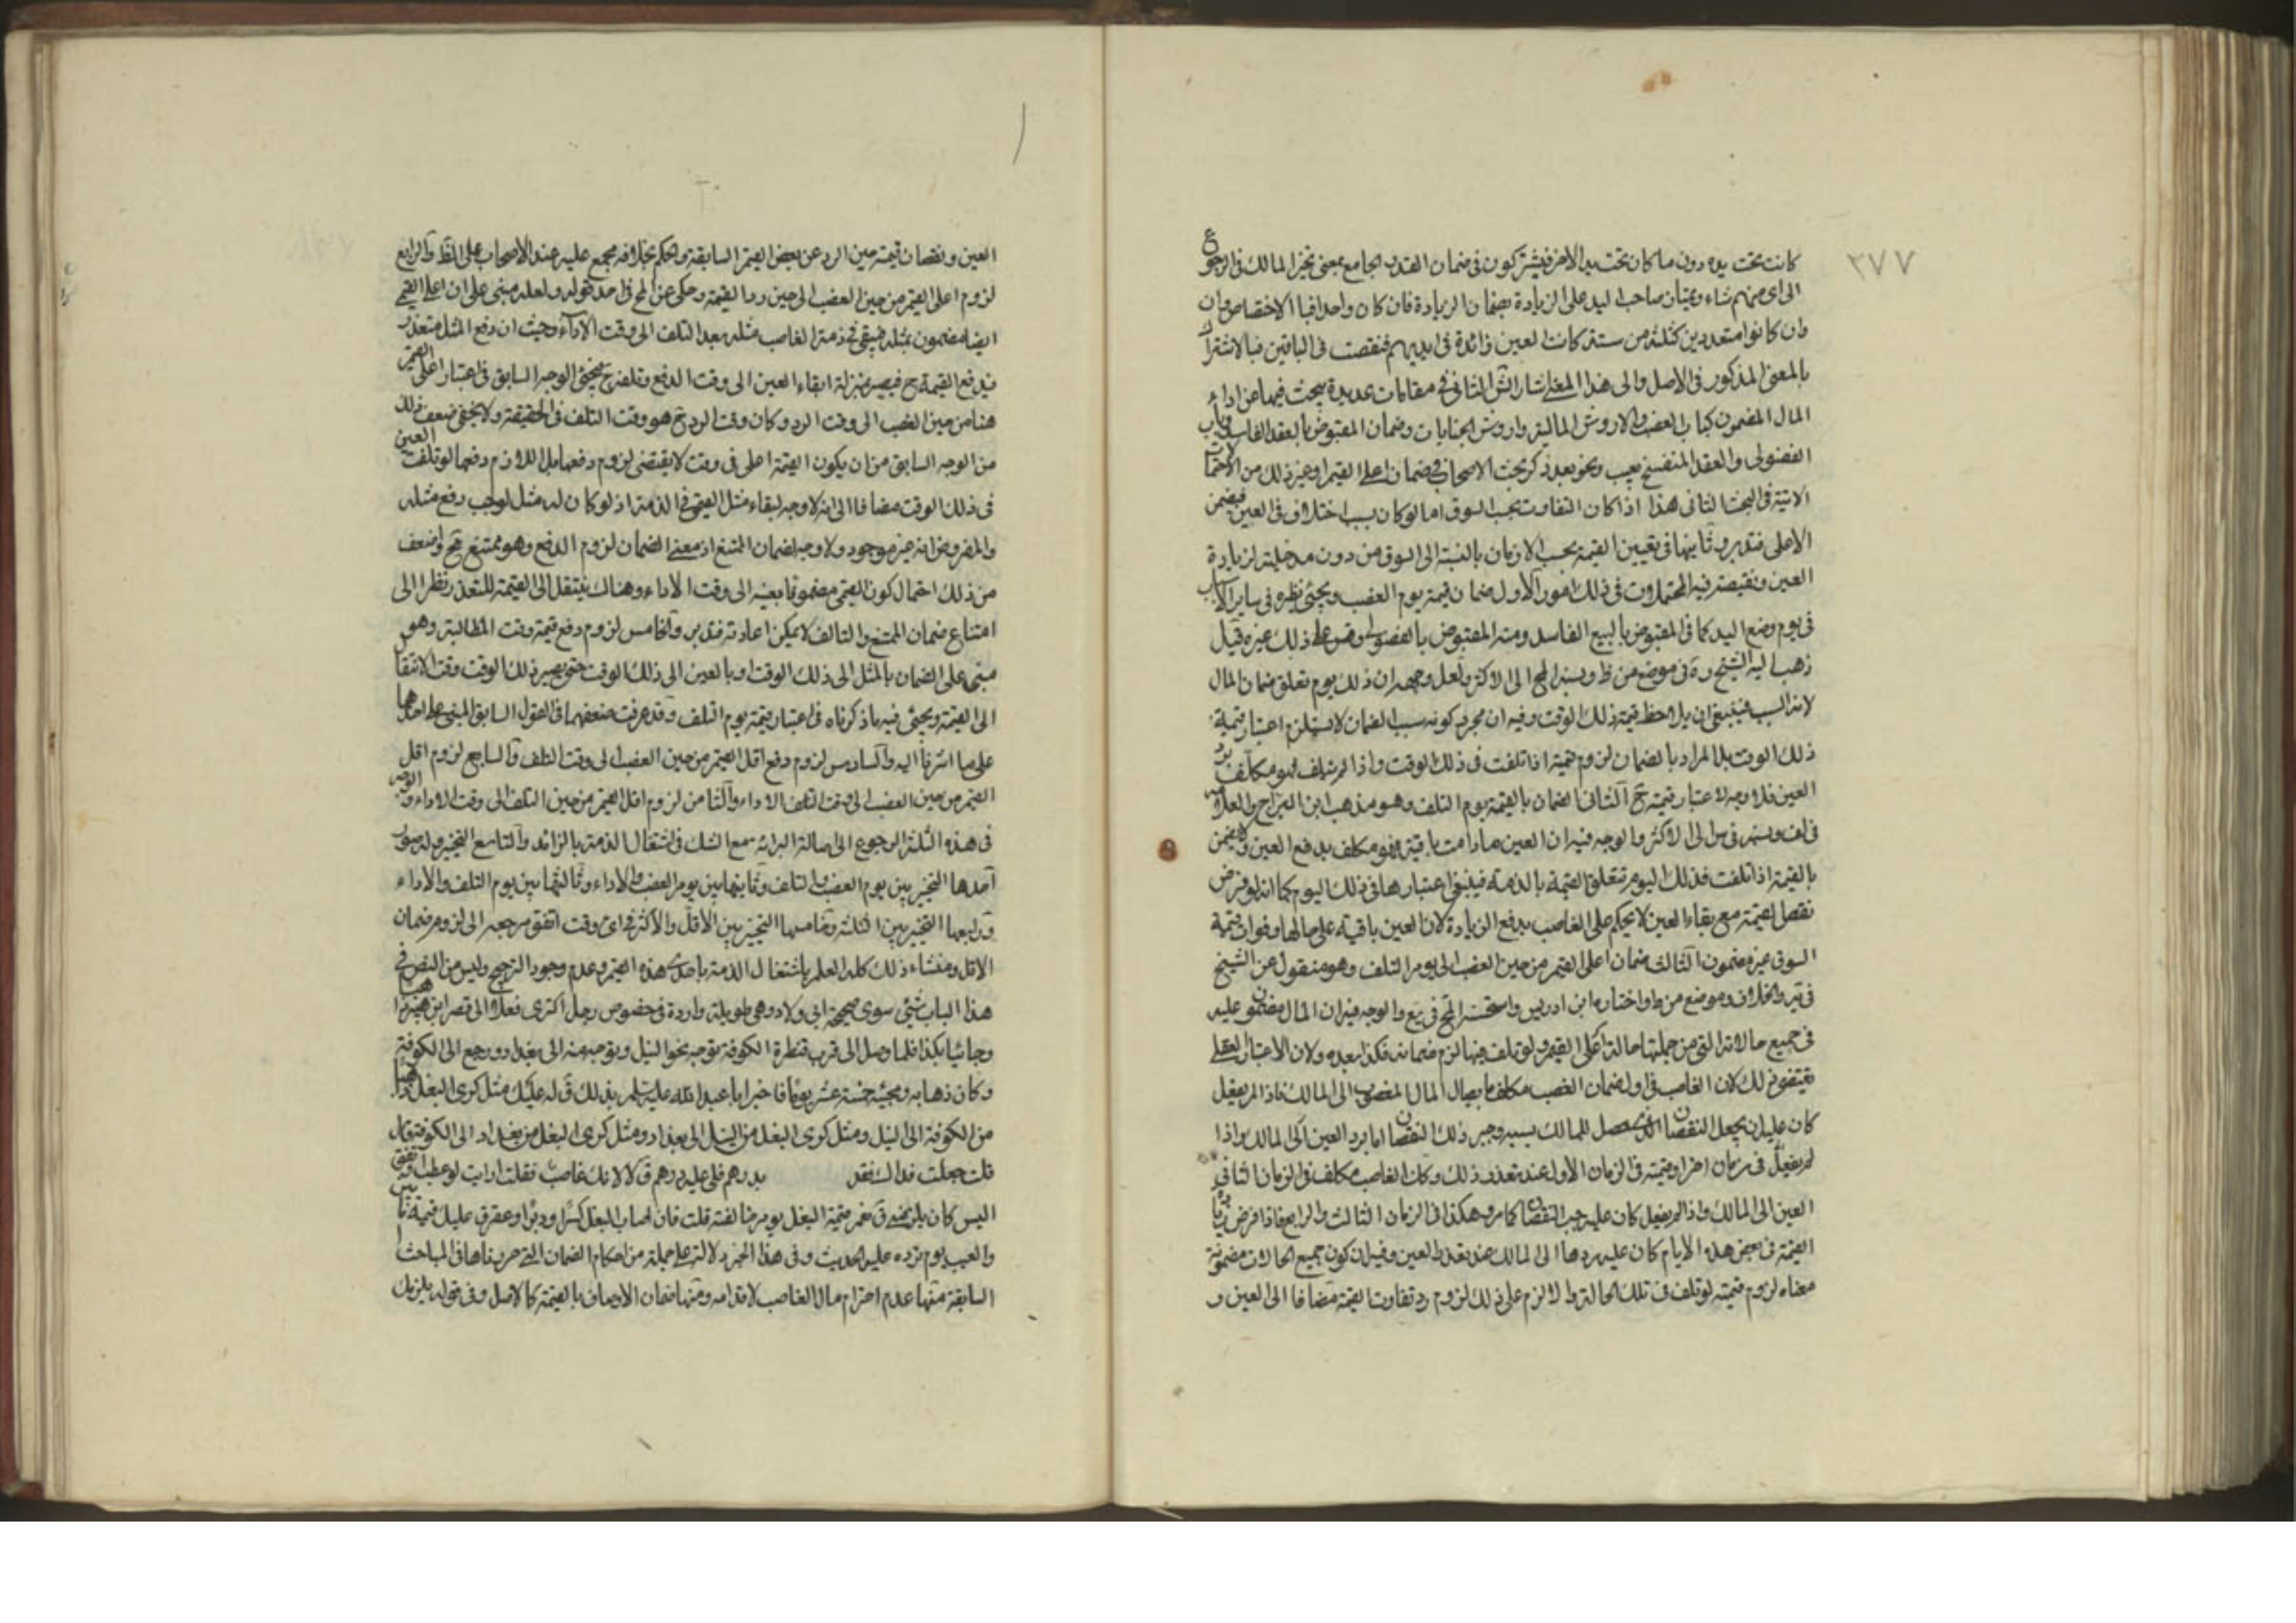 ٢٧٧
كانت تحت يده دون ما كان تحت يد الآخر فيشتركون في ضمان القدر الجامع بمعنى تخير المالك في الرجوع
الى اى منهم شاء صاحب اليد على الزيادة بضمان الزيادة فان كان واحدا الاختصاص وان
وان كانوا متعددين كثلثة من ستة كانت العين زائدة في ايديهم فنقصت في الباقين فبالاشتراك
بالمعنى المذكور في الاصل والى هذا المعنى اشار الش الثاني في مقامات عديدة يبحث فيها عن اداء
المال المضمون كباب الغصب والاروش المالية واروش الجنايات وضمان المقبوض بالعقد الفاسد وباب
الفضولى والعقد المنفسخ بعيب ونحو بعد ذكر بحث الاصحاب في ضمان اعلى القيم او غير ذلك من الاحتمالات
الآتية في البحث الثاني هذا اذا كان التفاوت بحسب السوق اما لو كان بسبب اختلاف في العين فيضمن
الاعلى فتدبر وثانيها في تعيين القيمة بحسب الازمان بالنسبة الى السوق من دون مدخلية لزيادة
العين ونقيصته فيه المحتملات في ذلك امور الاول ضمان قيمة يوم الغصب ويجئ نظيره في ساير الابواب
في يوم وضع اليد كما في المقبوض بالبيع الفاسد ومنه المقبوض بالفضولى وقس على ذلك غيره قيل
ذهب اليه الشيخ ره في موضع من ط ونسبه المح الى الاكثر ولعل وجهه ان ذلك يوم تعلق ضمان المال
لانه السبب فينبغى ان يلاحظ قيمة ذلك الوقت وفيه ان مجرد كونه سبب الضمان لا يستلزم اعتبار قيمة
ذلك الوقت بل المراد بالضمان لزوم قيمته اذا تلفت في ذلك الوقت واذا لم يتلف فهو مكلف برد
العين فلا وجه لاعتبار قيمته ح الثاني الضمان بالقيمة يوم التلف وهو مذهب ابن البراج والعلامة
في لف ونسبه في س الى الاكثر والوجه فيه ان العين ما دامت باقية فهو مكلف بدفع العين ويضمن
بالقيمة اذا تلفت فذلك اليوم تتعلق القيمة بالذمة فينبغى اعتبارها في ذلك اليوم كما انه لو فرض
نقص القيمة مع بقاء العين لا يحكم على الغاصب بدفع الزيادة لان العين باقية على حالها وفوات قيمة
السوق غير مضمون الثالث ضمان اعلى القيم من حين الغصب الى يوم التلف وهو منقول عن الشيخ
في ية والخلاف وموضع من ط واختاره ابن ادريس واستحسنه المح في يع والوجه فيه ان المال مضمون عليه
في جميع حالاته التي من جملتها حالة اعلى القيم ولو تلف فيها لزم ضمانه فكذا بعده ولان الاعتبار العقلى
يقتضى ذلك لان الغاصب في اول ضمان الغصب مكلف بايصال المال المغصوب الى المالك فاذا لم يفعل
كان عليه ان يجعل النقصان الذى حصل للمالك بسببه وجبر ذلك النقصان اما برد العين الى المالك واذا
لم يفعل في زمان آخر او قيمته في الزمان الاول عند تعذر ذلك وكان الغاصب مكلف في الزمان الثاني برد
العين الى المالك واذا لم يفعل كان عليه جبر النقصان كما مر وهكذا في الزمان الثالث والرابع فاذا فرض زيادة
القيمة في بعض هذه الايام كان عليه ردها الى المالك عند تعذر العين وفيه ان كون جميع الحالات مضمونة
معناه لزوم قيمته لو تلف في تلك الحالة والا لزم على ذلك لزوم رد تفاوت القيمة مضافا الى العين و
العين ونقصان قيمته حين الرد عن بعض القيم السابقة والحكم بخلافه مجمع عليه عند الاصحاب على الظ والرابع
لزوم اعلى القيم من حين الغصب الى حين رد القيمة وحكى عن المح في احد قوليه ولعله مبنى على ان اعلى القيم
ايضا مضمون بمثله فيبقى في ذمة الغاصب مثله بعد التلف الى وقت الاداء وحيث ان دفع المثل متعذر
فيدفع القيمة ح فيصير بمنزلة ابقاء العين الى وقت الدفع وتلفه ح فيجئ الوجه السابق في اعتبار اعلى القيم
هنا من حين الغصب الى وقت الرد وكان وقت الرد ح هو وقت التلف في الحقيقة ولا يخفى ضعف ذلك
من الوجه السابق من ان يكون القيمة اعلى في وقت لا يقتضى لزوم دفعها بل اللازم دفعها لو تلفت العين
في ذلك الوقت مضافا الى انه لا وجه لبقاء مثل القيمى في الذمة اذ لو كان له مثل لوجب دفع مثله
والمفروض انه غير موجود ولا وجه لضمان الممتنع اذ معنى الضمان لزوم الدفع وهو ممتنع ح واضعف
من ذلك احتمال كون القيمى مضمونا بعينه الى وقت الاداء وهناك ينتقل الى القيمة للتعذر نظرا الى
امتناع ضمان الممتنع والتالف لا يمكن اعادته فتدبر والخامس لزوم دفع قيمة وقت المطالبة وهو
مبنى على الضمان بالمثل الى ذلك الوقت او بالعين الى ذلك الوقت حتى يصير ذلك الوقت وقت الانتقال
الى القيمة ويجئ فيه ما ذكرناه في اعتبار قيمة يوم التلف وقد عرفت ضعفهما في القول السابق المبنى على احدهما
على ما اشرنا اليه والسادس لزوم دفع اقل القيم من حين الغصب الى وقت التلف والسابع لزوم اقل
القيم من حين الغصب الى وقت الاداء والثامن لزوم اقل القيم من حين التلف الى وقت الاداء والوجه
في هذه الثلثة الرجوع الى اصالة البرائة مع الشك في اشتغال الذمة بالزائد والتاسع التخيير وله صور
احدها التخيير بين يوم الغصب والتلف وثانيها بين يوم الغصب والاداء وثالثها بين يوم التلف والاداء
ورابعها التخيير بين الثلثة وخامسها التخيير بين الاقل والاكثر في اى وقت اتفق مرجعه الى لزوم ضمان
الاقل ومنشاء ذلك كله العلم باشتغال الذمة باحدى هذه القيم وعدم وجود الترجيح وليس من النص في
هذا الباب شئ سوى صحيحة ابى ولاد وهى طويلة واردة في خصوص رجل اكترى بغلا الى قصر ابن هبيرة ذاهبا
وجائيا بكذا فلما وصل الى قرب قنطرة الكوفة توجه نحو النيل وتوجه منه الى بغداد ورجع الى الكوفة
وكان ذهابه ومجيئه خمسة عشر يوما فاخبر ابا عبد الله عليه السلم بذلك ق له عليك مثل كرى البغل ذاهبا
من الكوفة الى النيل ومثل كرى البغل من النيل الى بغداد ومثل كرى البغل من بغداد الى الكوفة قال
قلت جعلت فداك فقد بدرهم فلى عليه درهم ق لا لانك غاصب فقلت ارايت لو عطب ونفق
اليس كان يلزمنى ق نعم قيمة البغل يوم خالفته قلت فان اصاب البغل كسر او دبر او عقر ق عليك قيمة ما بين
والعيب يوم ترده عليه الحديث وفى هذا الخبر دلالة على جملة من احكام الضمان التى حررناها في المباحث
السابقة منها عدم احترام مال الغاصب لاقدامه ومنها ضمان الاوصاف بالقيمة كالاصل وفى قوله يلزمك